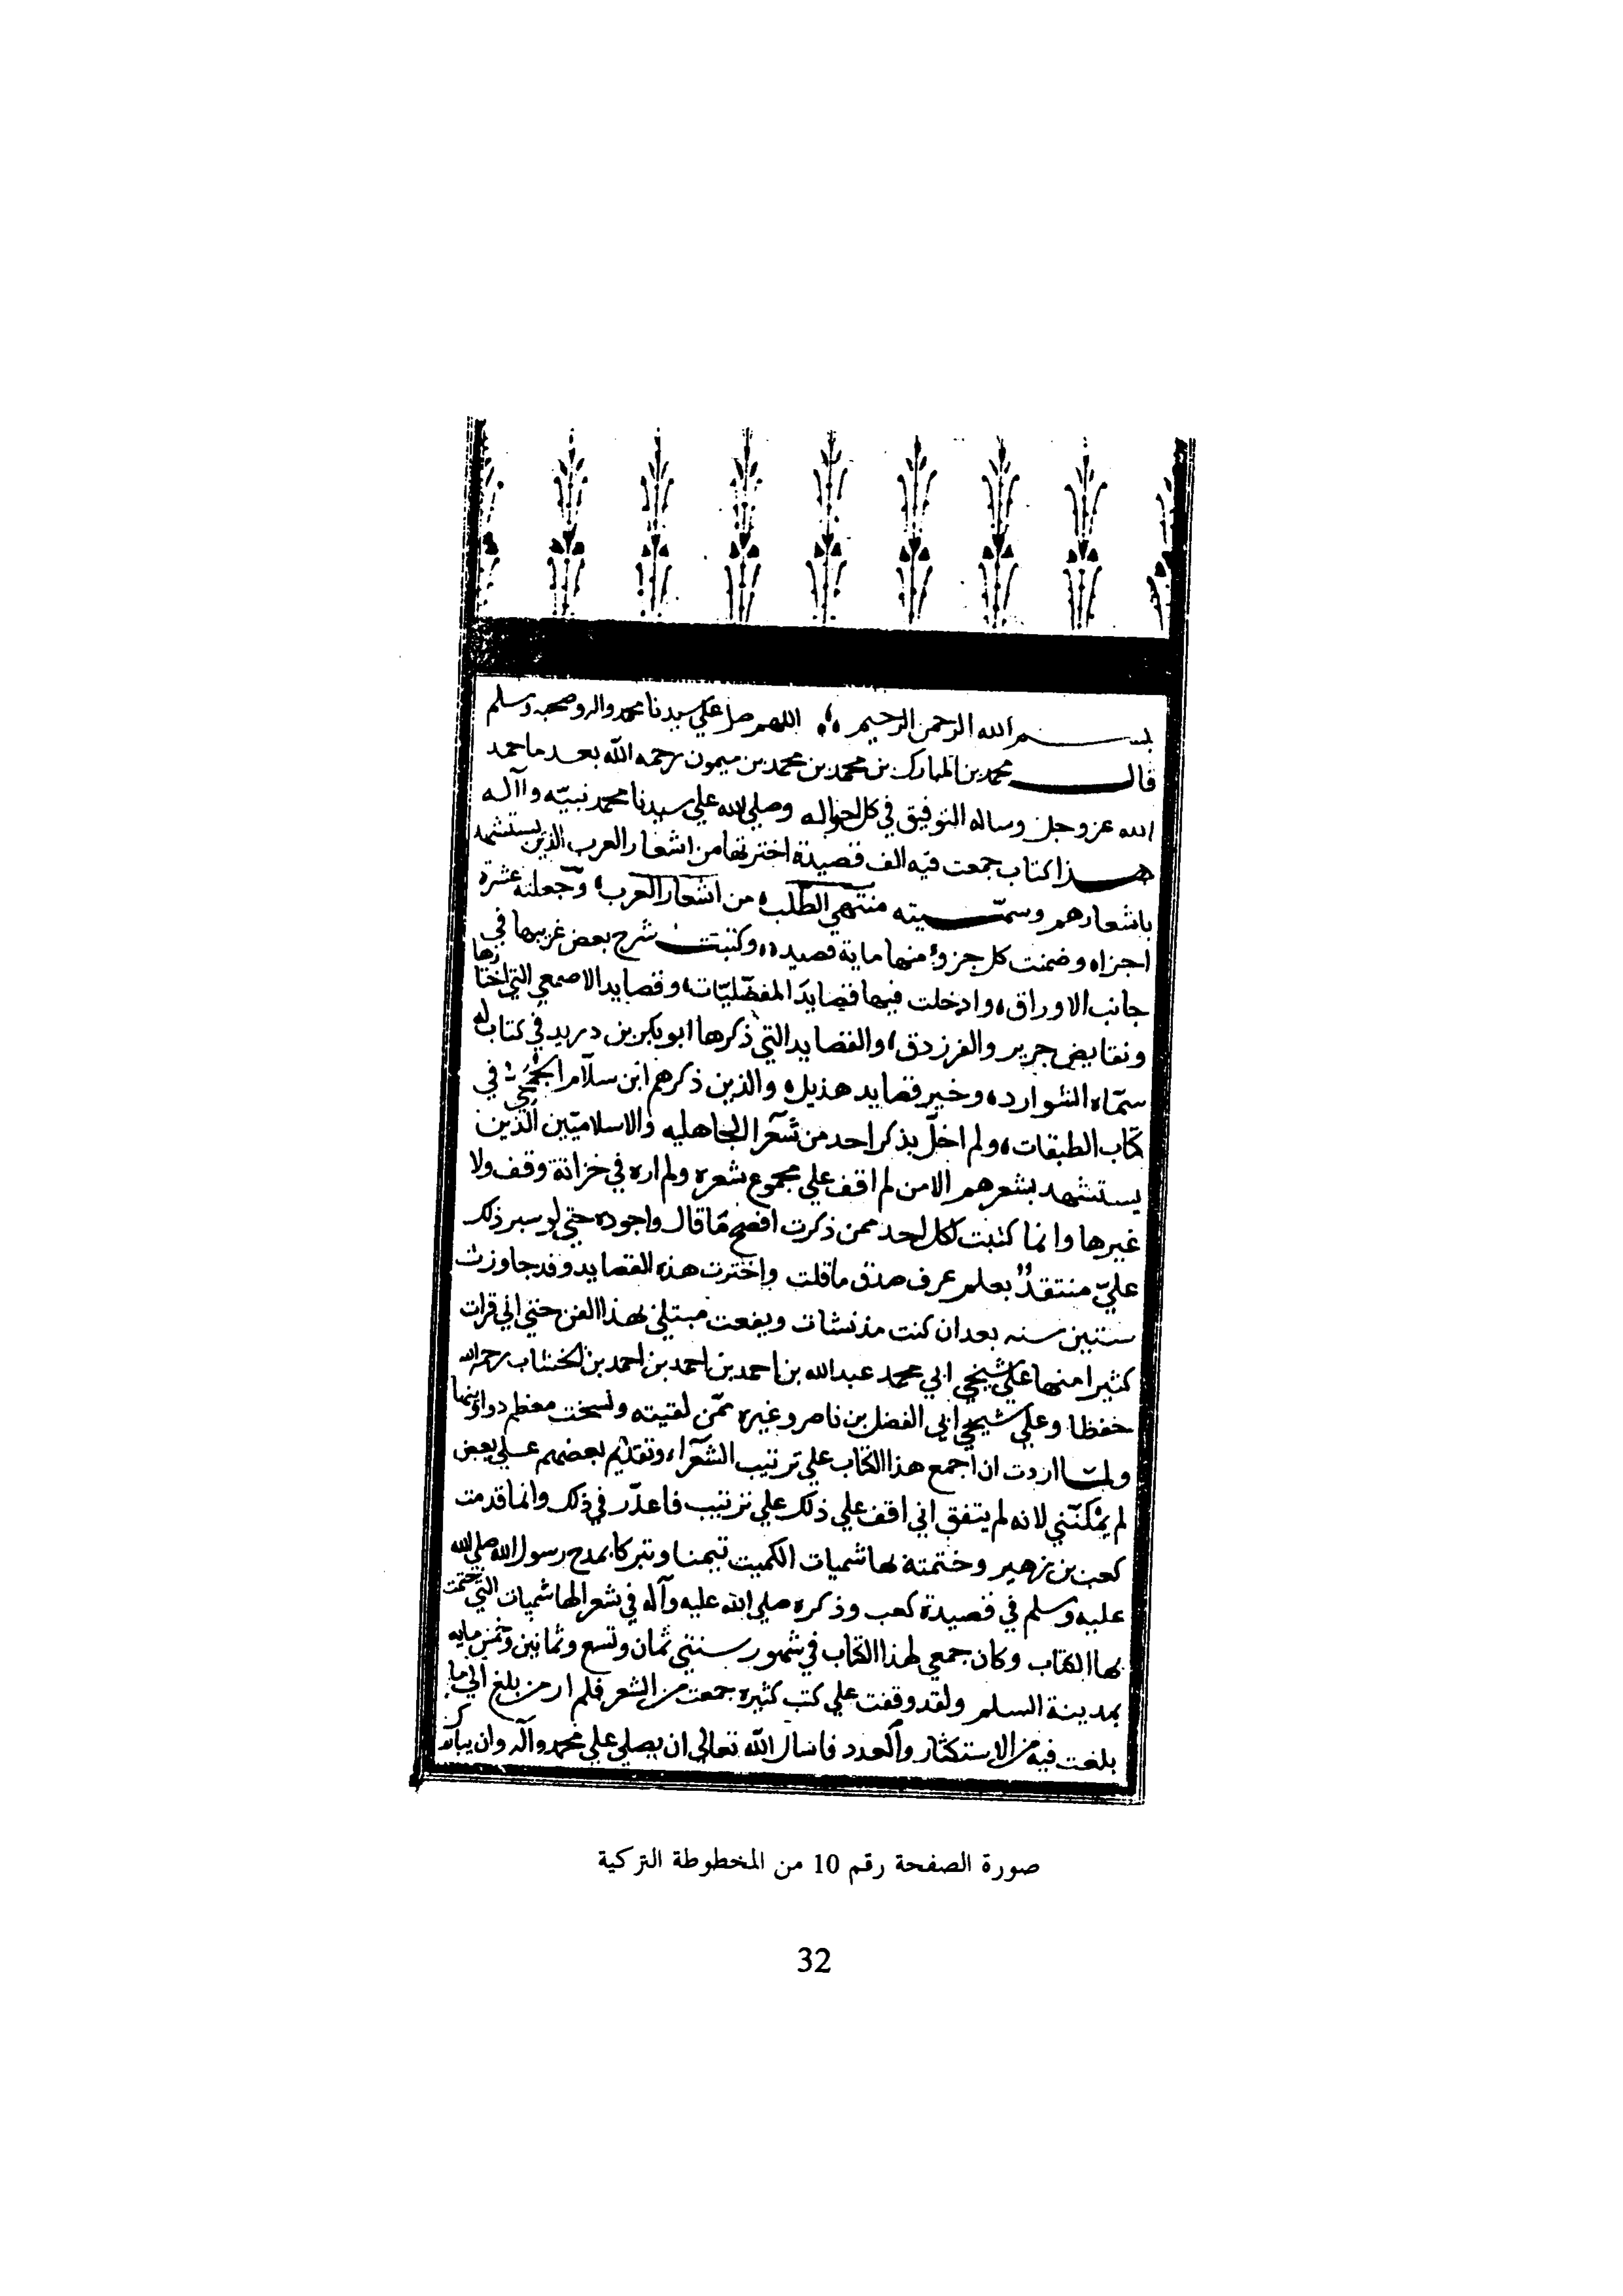 بسم الله الرحمن الرحيم اللهم صل علي سيدنا محمد واله وصحبه وسلم
قال محمد بن المبارك بن محمد بن محمد بن ميمون رحمه الله بعد ما حمد
الله عز وجل وساله التوفيق في كل احواله وصلي الله علي سيدنا محمد نبيّه وآاله
هذا كتاب جمعت فيه الف قصيدة اخترتها من اشعار العرب الذين يستشهد
باشعارهم وسمّيته منتهي الطلب من اشعار العرب وجعلته عشرة
اجزاء وضمنت كل جزوء منها ماية قصيده وكتبت شرح بعض غريبها في
جانب الاوراق، وادخلت فيها قصايد المفضّليّات، وقصايد الاصمعي التي اختارها
ونقايض جرير والفرزدق، والقصايد التي ذكرها ابو بكر بن دريد في كتاب له
سمّاه الشوارد، وخير قصايد هذيل، والذين ذكرهم ابن سلّام الجُمَحِي في
كتاب الطبقات، ولم اخلّ بذكر احد من شعرآ الجاهليه والاسلاميّين الذين
يستشهد بشعرهم الا من لم اقف علي مجموع شعره ولم اره في خزانة وقف ولا
غيرها وانما كتبت لكل احد ممن ذكرت افصح ما قال واجوده حتي لو سبر ذلك
عليّ منتقدٌ بعلم عرف صدق ما قلت واخترت هذه القصايد وقد جاوزت
ستين سنه بعد ان كنت مذ نشات ويفعت مبتلي بهذا الفن حتي اني قرات
كثيرا منها علي شيخي ابي محمد عبد الله بن احمد بن احمد بن احمد بن الخشاب رحمه الله
حفظا وعلي شيخي ابي الفضل بن ناصر وغيره ممّن لقيته ونسخت معظم دواوينها
ولما اردت ان اجمع هذا الكتاب علي ترتيب الشعرآء وتقديم بعضهم علي بعض
لم يمكنّني لانه لم يتفق اني اقف علي ذلك علي ترتيب فاعذر في ذلك وانما قدمت
كعب بن زهير وختمته بهاشميات الكميت تيمنا وتبركا بمدح رسول الله صلي الله
عليه وسلم في قصيدة كعب وذكره صلي الله عليه وآله في شعر الهاشميات التي ختمت
بها الكتاب وكان جمعي لهذا الكتاب في شهور سنتي ثمان وتسع وثمانين وخمس مايه
بمدينة السلم ولقد وقفت علي كتب كثيره جمعت من الشعر فلم ار من بلغ الي ما
بلغت فيه من الاستكثار والعدد فاسال الله تعالي ان يصلي علي محمد وآله وان يبارك
صورة الصفحة رقم 10 من المخطوطة التركية
32